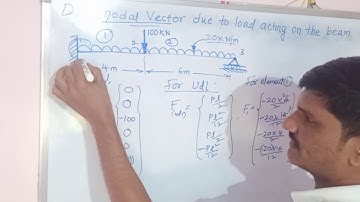 D nodal Vector due to load acting on the beam
① 2 100KN ② 20KN/m
3
4m 6m
For Udl: For element ①
0
0
-100
0
0
F(udl) = Pl/2 Pl²/12 Pl/2 -Pl²/12
F₁ = -20×4/2 -20×16/12 -20×4/2 -(-20)×16/12